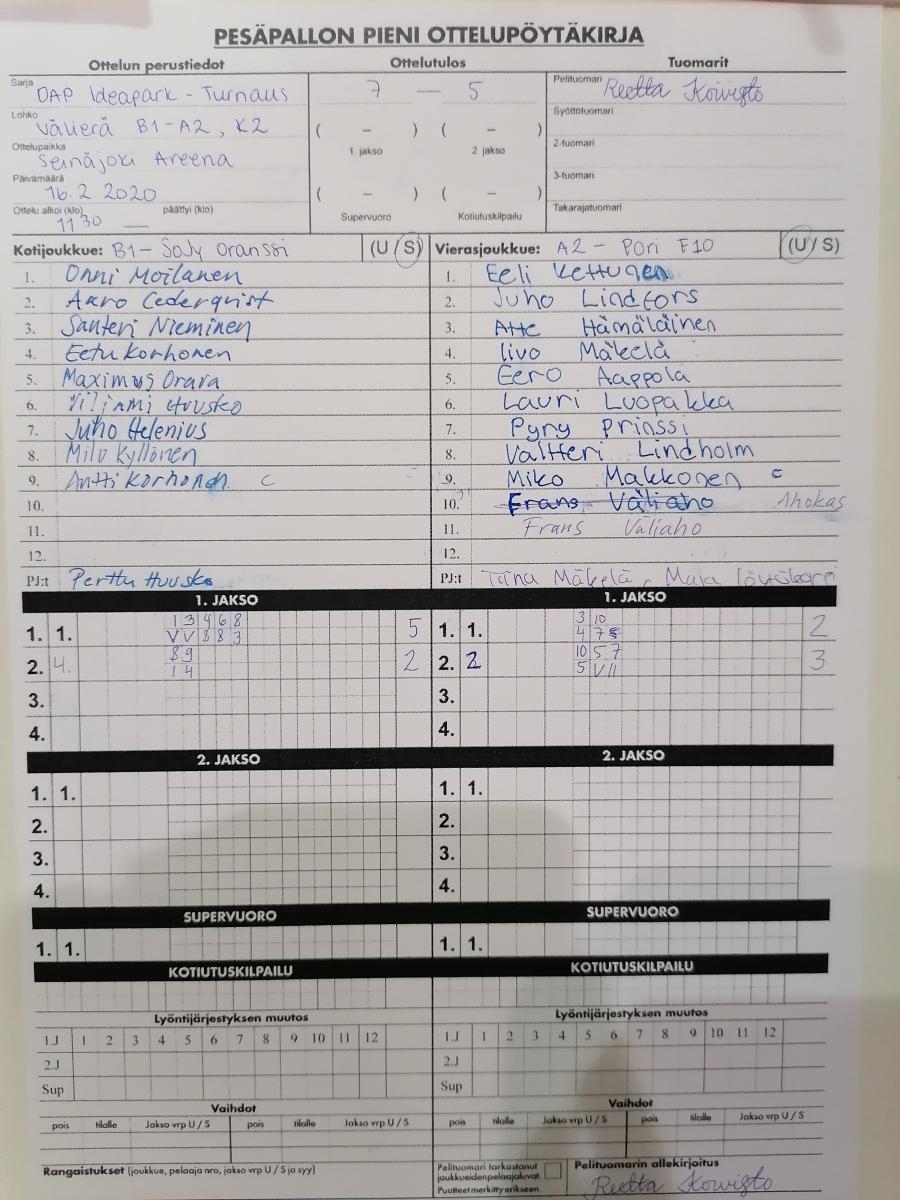 PESÄPALLON PIENI OTTELUPÖYTÄKIRJA
Ottelun perustiedot Ottelutulos Tuomarit
Sarja OAP Ideapark - Turnaus
7 — 5
Pelituomari Reetta Koivisto
Lohko Välierä B1-A2, K2
( – ) ( – )
1. jakso 2. jakso
Syöttötuomari
Ottelupaikka Seinäjoki Areena
2-tuomari
Päivämäärä 16.2 2020
( – ) ( – )
3-tuomari
Ottelu alkoi (klo) 11 30 päättyi (klo) —
Supervuoro Kotiutuskilpailu
Takarajatuomari
Kotijoukkue: B1 - SoJy Oranssi (U / S) Vierasjoukkue: A2 - Pori F10 (U / S)
1. Onni Moilanen 1. Eeli Kettunen
2. Aaro Cederqvist 2. Juho Lindfors
3. Santeri Nieminen 3. Atte Hämäläinen
4. Eetu Korhonen 4. Iivo Mäkelä
5. Maximus Orava 5. Eero Aappola
6. Viljami Huusko 6. Lauri Luopakka
7. Juho Helenius 7. Pyry Prinssi
8. Milo Kyllönen 8. Valtteri Lindholm
9. Antti Korhonen C 9. Miko Makkonen C
10. 10. Frans Väliaho Ahokas
11. 11. Frans Väliaho
12. 12.
PJ:t Perttu Huusko PJ:t Tiina Mäkelä, Maja
1. JAKSO 1. JAKSO
1 3 4 6 8 3 10
1. 1. V V 8 8 3 5 1. 1. 4 7 8 2
8 9 10 5 7
2. 4. 1 4 2 2. 2 5 V 11 3
3. 3.
4. 4.
2. JAKSO 2. JAKSO
1. 1. 1. 1.
2. 2.
3. 3.
4. 4.
SUPERVUORO SUPERVUORO
1. 1. 1. 1.
KOTIUTUSKILPAILU KOTIUTUSKILPAILU
Lyöntijärjestyksen muutos Lyöntijärjestyksen muutos
1.J 1 2 3 4 5 6 7 8 9 10 11 12 1.J 1 2 3 4 5 6 7 8 9 10 11 12
2.J 2.J
Sup Sup
Vaihdot Vaihdot
pois tilalle Jakso vrp U / S pois tilalle Jakso vrp U / S pois tilalle Jakso vrp U / S pois tilalle Jakso vrp U / S
Rangaistukset (joukkue, pelaaja nro, jakso vrp U / S ja syy)
Pelituomari tarkastanut
joukkueiden pelaajaluvat.
Puutteet merkitty erikseen.
Pelituomarin allekirjoitus
Reetta Koivisto